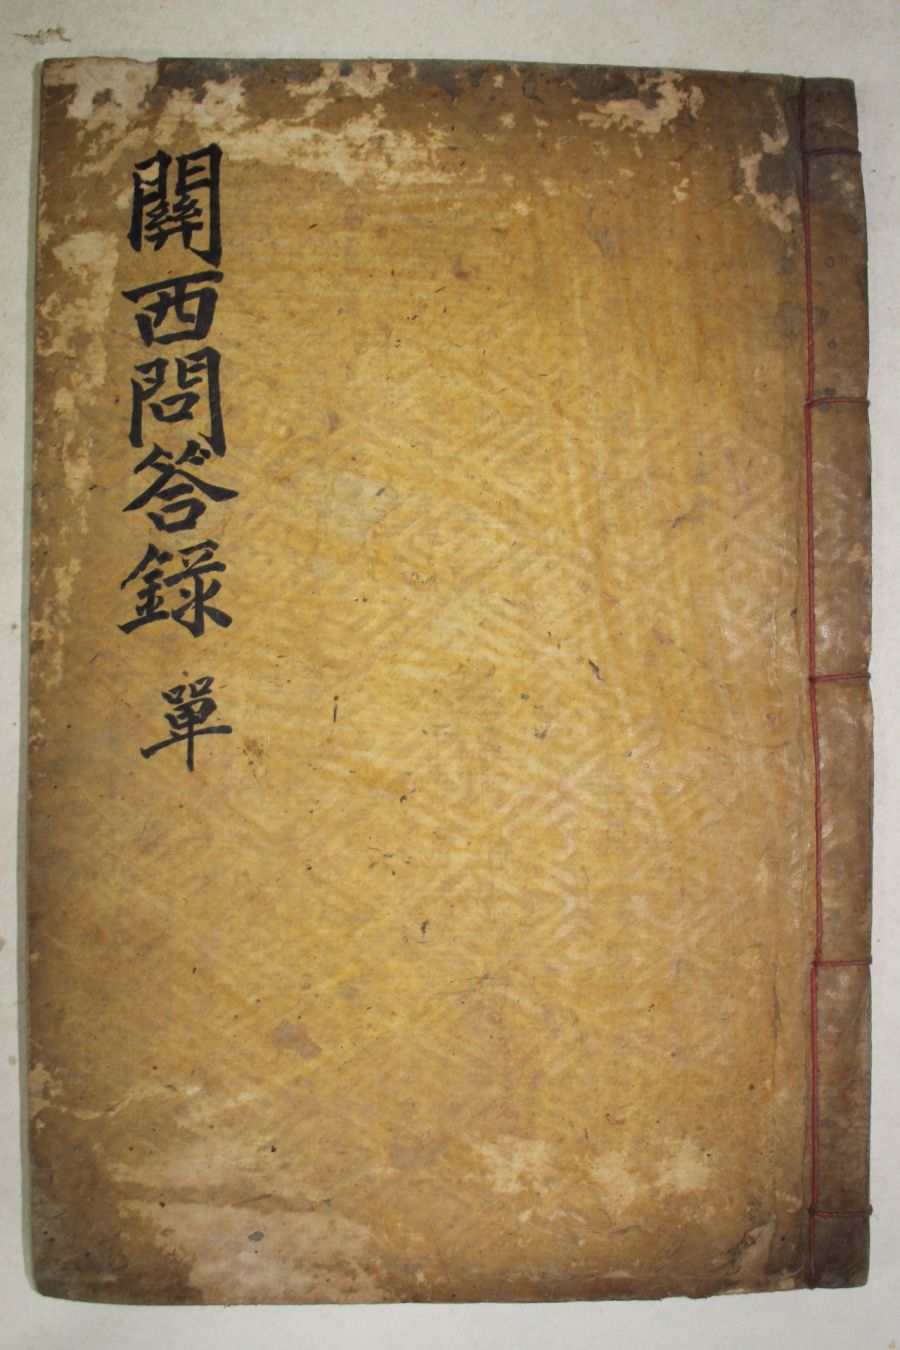 關西問答錄 單